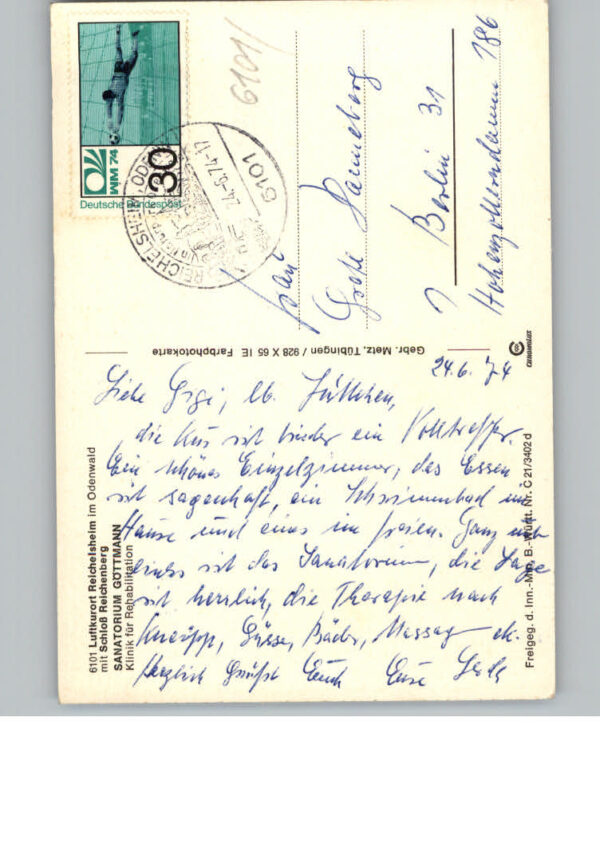 24.6.74
Liebe Gigi, lb.
die Kur ist wieder ein Volltreffer.
Ein schönes Einzelzimmer, das Essen
ist sagenhaft, ein Schwimmbad im
Hause und eines im freien. Ganz
ist das Sanatorium, die Lage
ist herrlich, die Therapie nach
Kneipp, Güsse, Bäder, Massage etc.
Herzlich grüßt Euch Eure
6101 Luftkurort Reichelsheim im Odenwald
mit Schloß Reichenberg
SANATORIUM GÖTTMANN
Klinik für Rehabilitation
Gebr. Metz, Tübingen / 928 X 65 IE Farbphotokarte
Freigeg. d. Inn.-Min. B.-Württ. Nr. C 21/3402 d
Frau
Grete Danneberg
1 Berlin 31
Hohenzollerndamm 186
6101/
WM 74
30
Deutsche Bundespost
6101 REICHELSHEIM, ODENW
24.-6.74-17